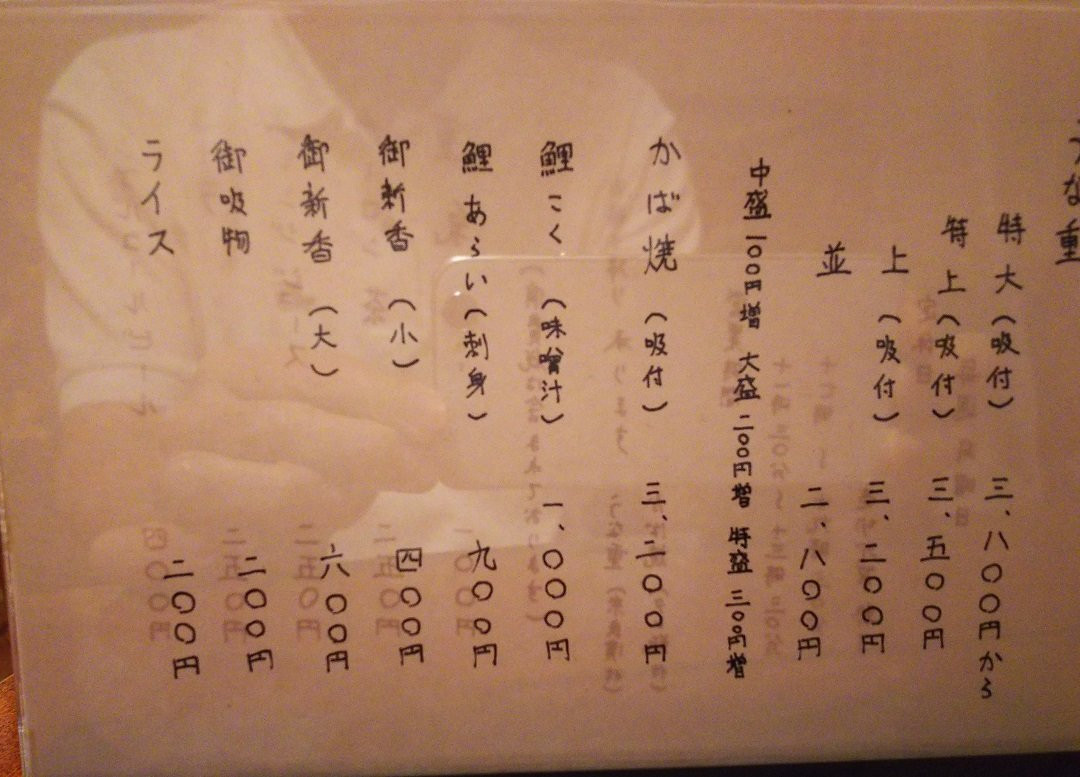 うな重
特大（吸付） 三、八〇〇円から
特上（吸付） 三、五〇〇円
上（吸付） 三、二〇〇円
並 二、八〇〇円
中盛一〇〇円増 大盛二〇〇円増 特盛三〇〇円増
かば焼（吸付） 三、二〇〇円
鯉こく（味噌汁） 一、〇〇〇円
鯉あらい（刺身） 九〇〇円
御新香（小） 四〇〇円
御新香（大） 六〇〇円
御吸物 二〇〇円
ライス 二〇〇円